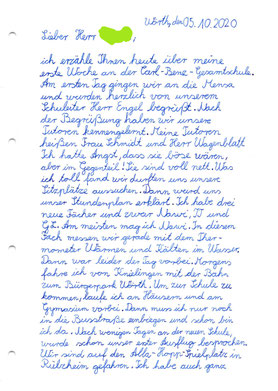 Wörth, den 05.10.2020
Lieber Herr
ich erzähle Ihnen heute über meine
erste Woche an der Carl-Benz-Gesamtschule.
Am ersten Tag gingen wir an die Mensa
und wurden herzlich von unserem
Schulleiter Herr Engel begrüßt. Nach
der Begrüßung haben wir unsere
Tutoren kennengelernt. Meine Tutoren
heißen Frau Schmidt und Herr Wagenblatt
Ich hatte Angst, dass sie böse wären,
aber im Gegenteil! Sie sind voll nett. Was
ich toll fand wir durften uns unsere
Sitzplätze aussuchen. Dann wurd uns
unser Stundenplan erklärt. Ich habe drei
neue Fächer und zwar Nawi, IT und
GL. Am meisten mag ich Nawi. In diesem
Fach messen wir gerade mit dem Ther-
mometer Wärmen und Kälten im Wasser.
Dann war leider der Tag vorbei. Morgens
fahre ich von Knielingen mit der Bahn
zum Bürgerpark Wörth. Um zur Schule zu
kommen, laufe ich an Häusern und am
Gymnasium vorbei. Dann muss ich nur noch
in die Busstraße einbiegen und schon bin
ich da. Nach wenigen Tagen an der neuen Schule,
wurde schon unser erster Ausflug besprochen
Wir sind auf den Alla-Hopp-Spielplatz in
Rülzheim gefahren. Ich habe auch ganz